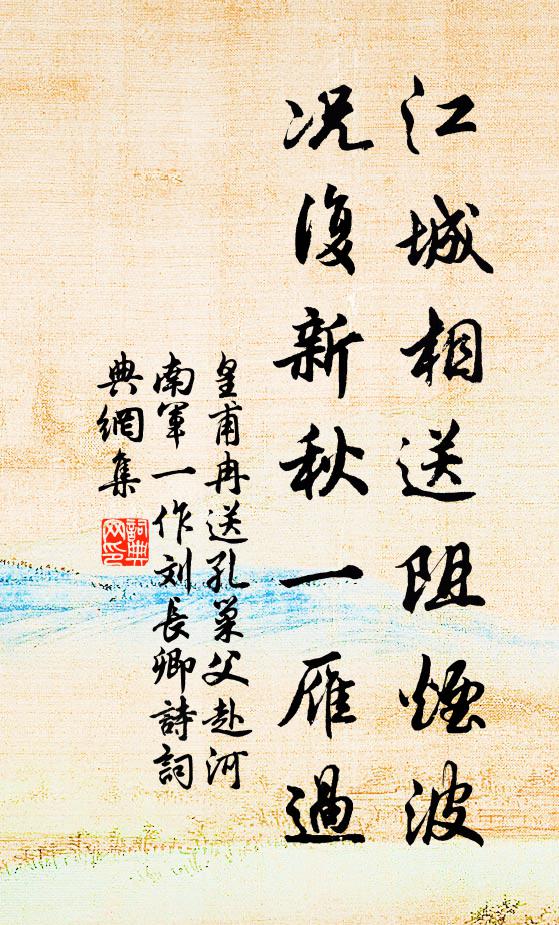 江城相送阻煙波
况復新秋一雁過
皇甫冉送孔巢父赴河
南軍一作刘長卿詩詞
典網集
詞典网印